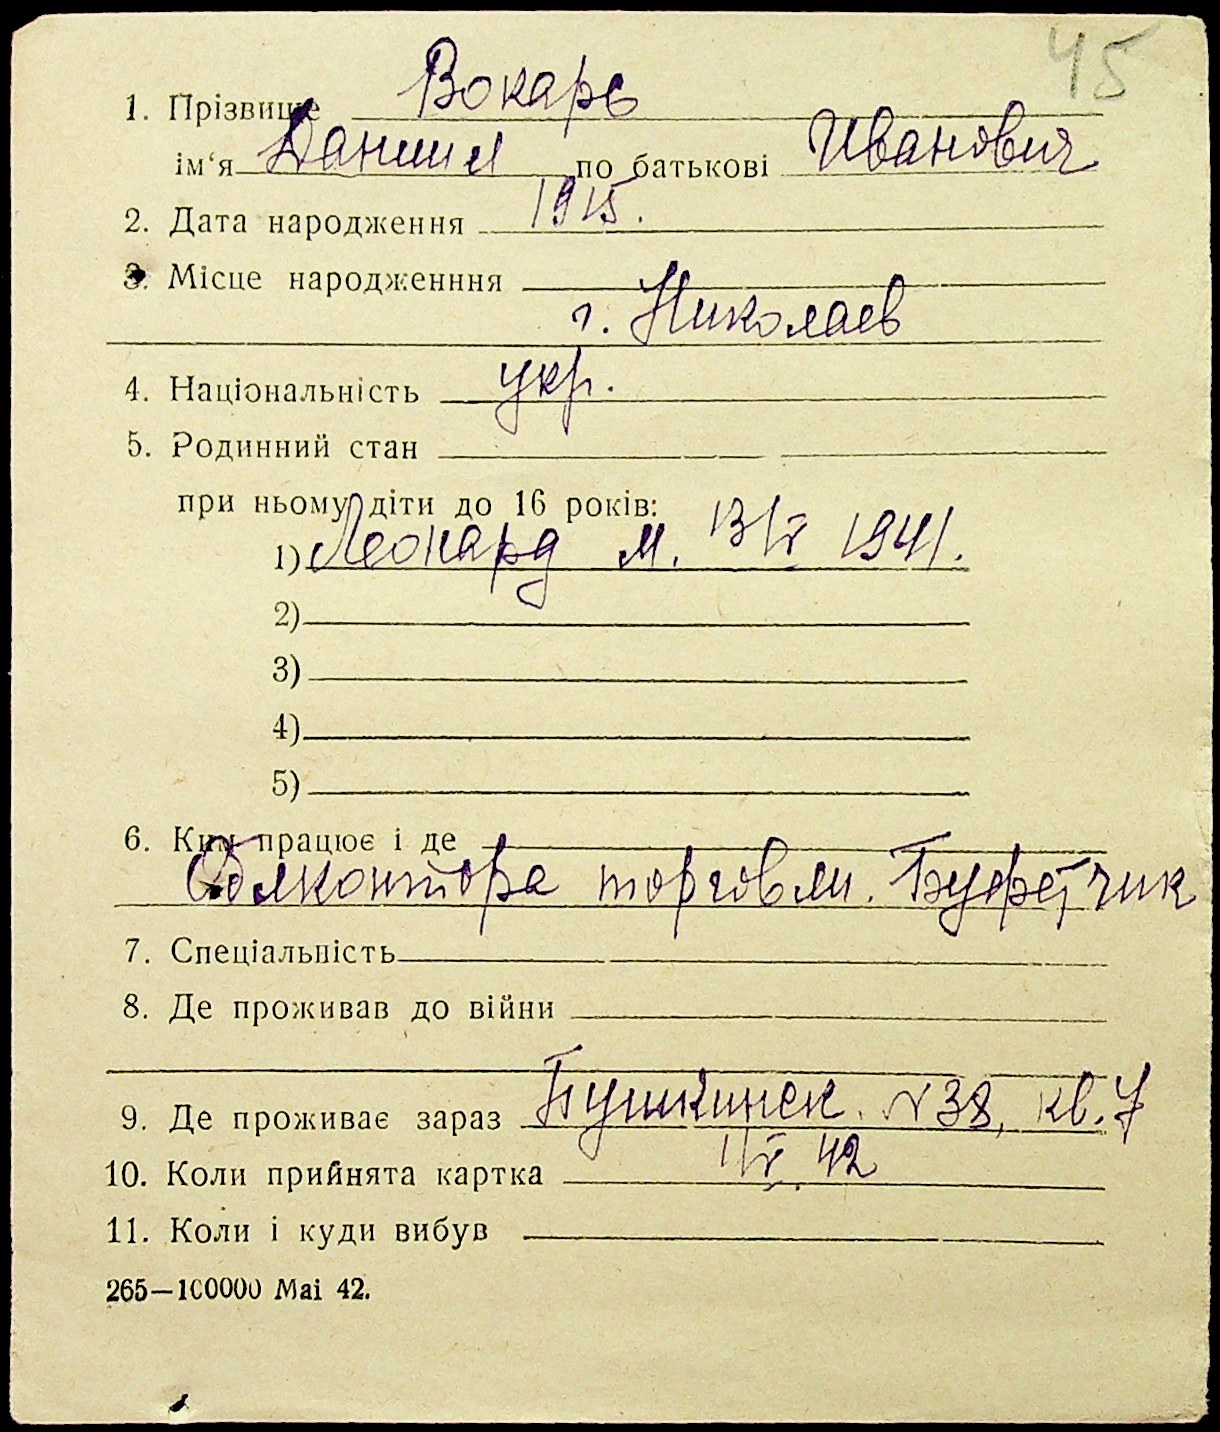 45
1. Прізвище Вокарь
ім'я Даниил по батькові Иванович
2. Дата народження 1915.
3. Місце народженння
г. Николаев
4. Національність укр.
5. Родинний стан
при ньому діти до 16 років:
1) Леонард м. 13/V 1941.
2)
3)
4)
5)
6. Ким працює і де
Облконтора торговли. Буфетчик
7. Спеціальність
8. Де проживав до війни
9. Де проживає зараз Пушкинск. № 38, кв. 7
10. Коли прийнята картка 1/V. 42
11. Коли і куди вибув
265—100000 Маі 42.